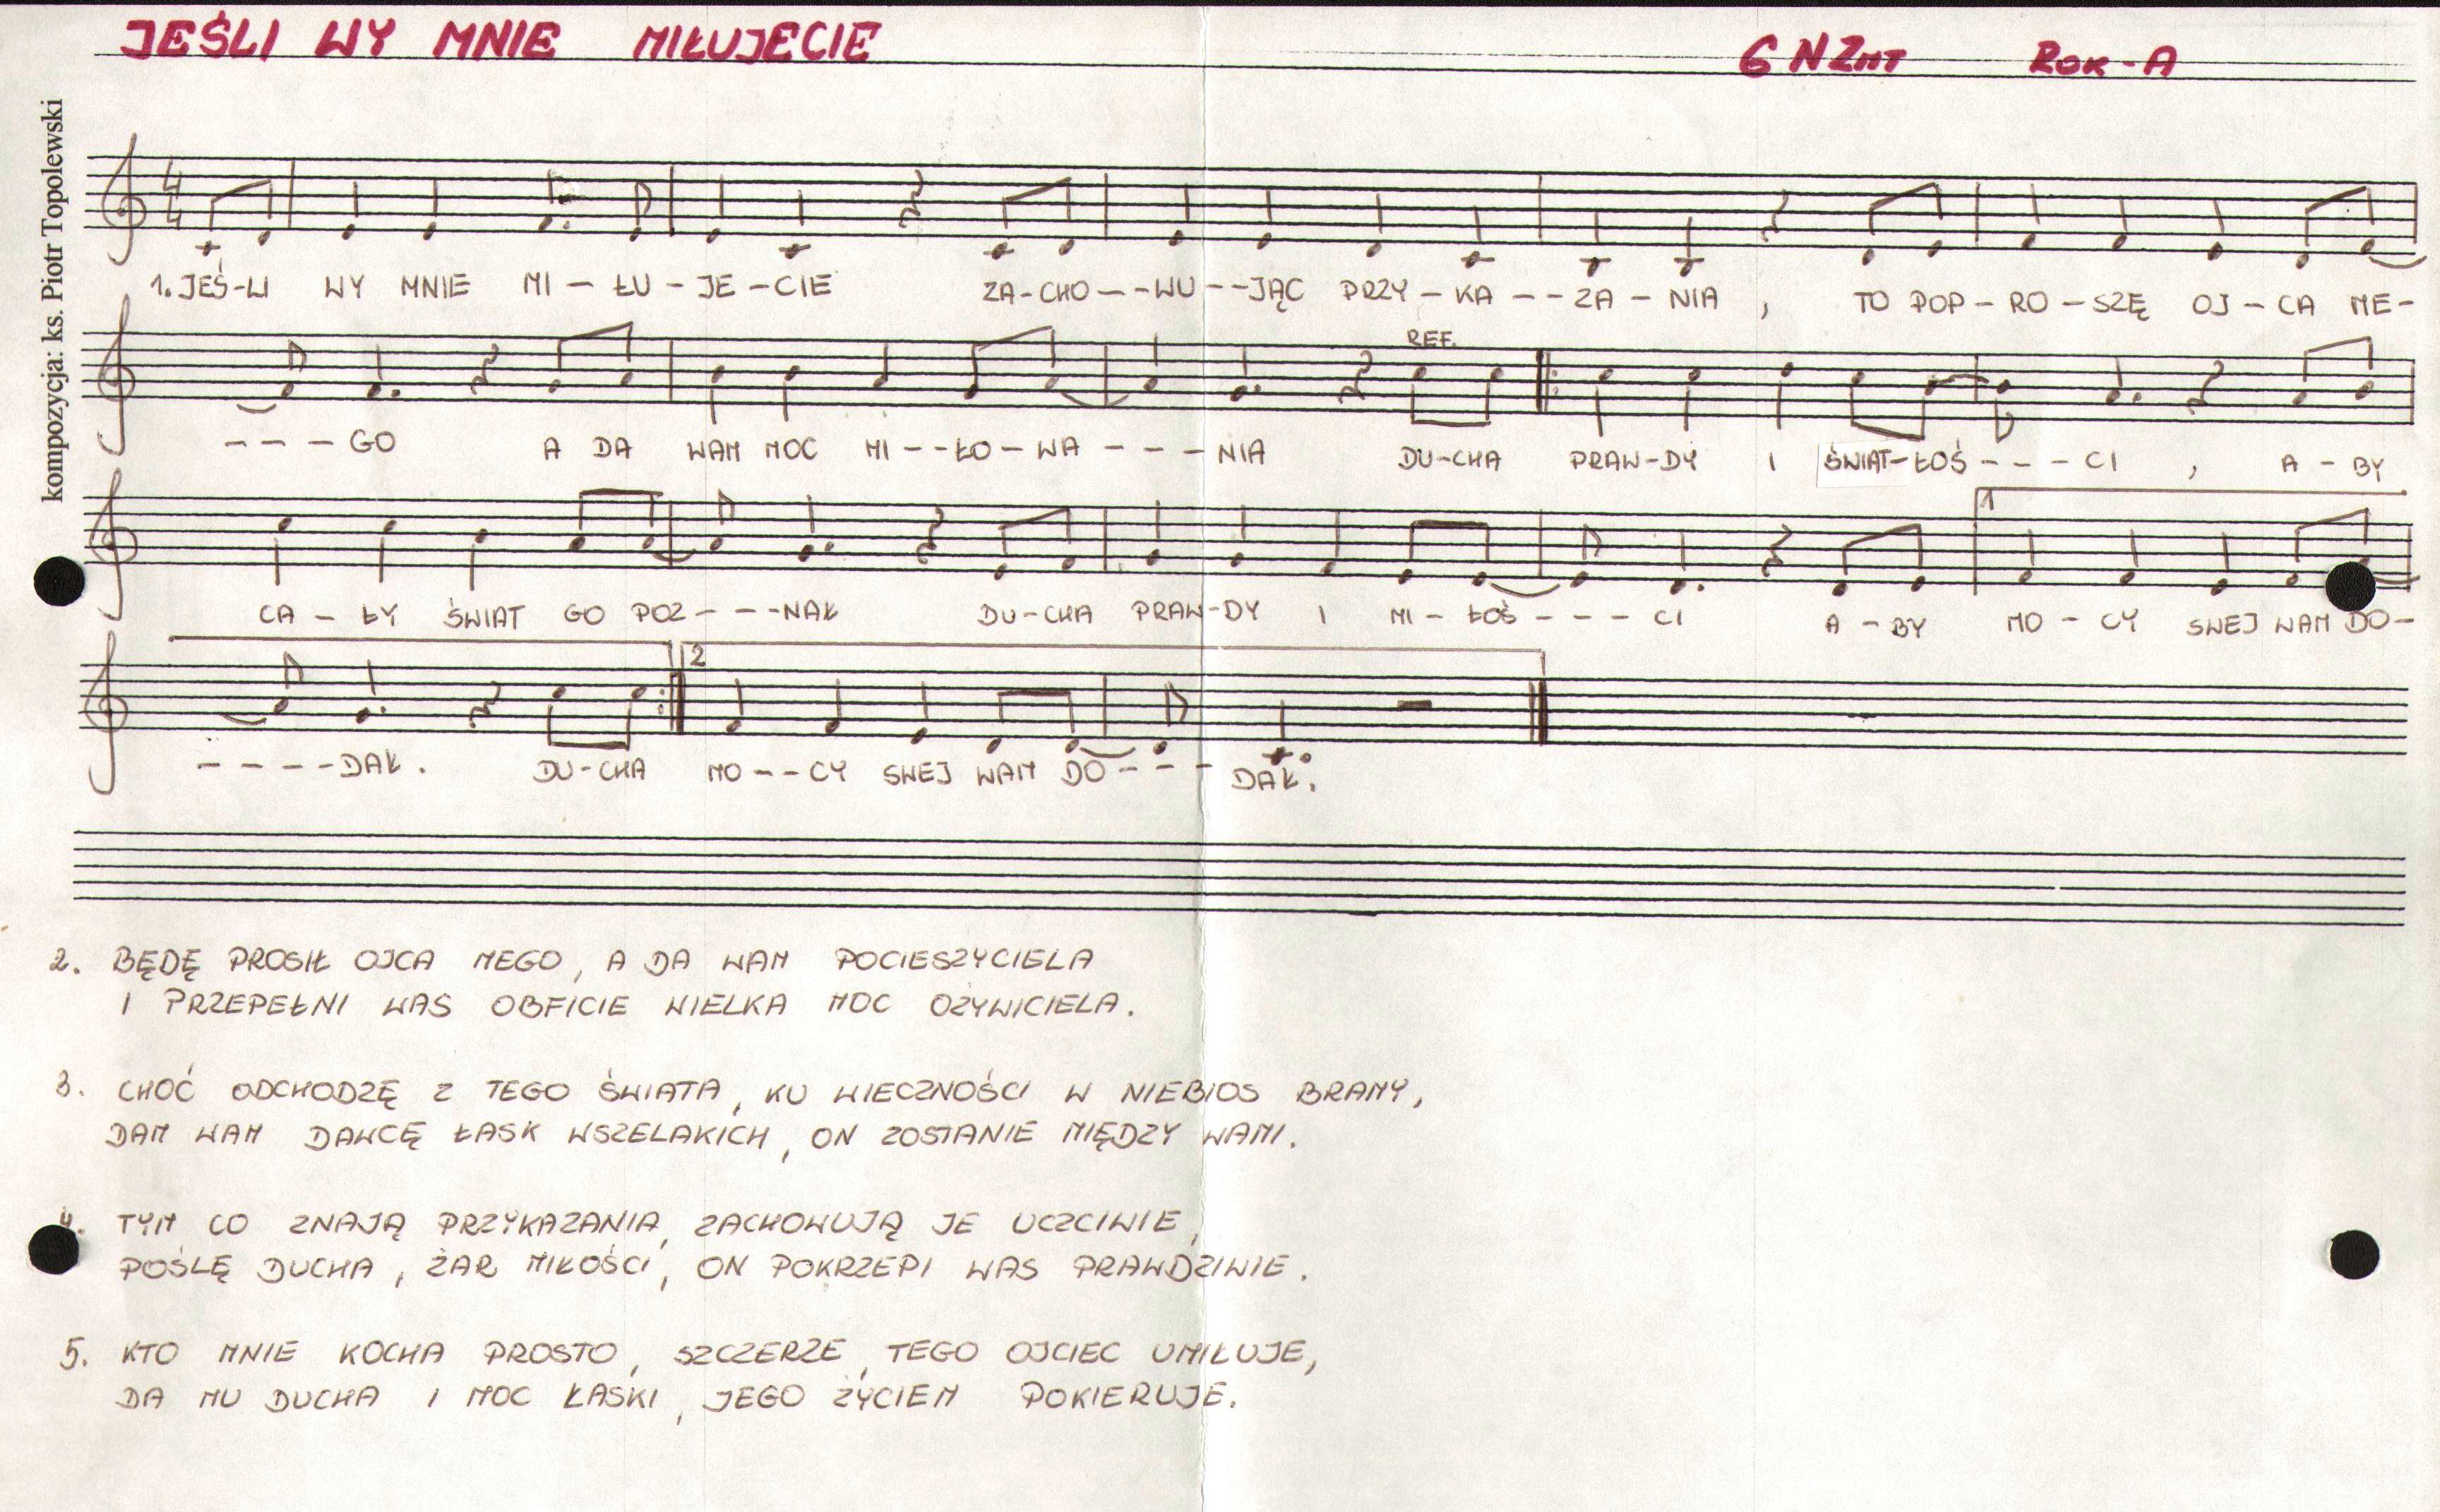 JEŚLI WY MNIE MIŁUJECIE 6 NZMT ROK-A
kompozycja: ks. Piotr Topolewski
1. JEŚ-LI WY MNIE MI – ŁU – JE – CIE ZA-CHO – – WU – – JĄC PRZY – KA – – ZA – NIA , TO POP – RO – SZĘ OJ – CA ME –
REF.
– – – GO A DA WAM MOC MI – – ŁO – WA – – – NIA DU-CHA PRAW-DY I ŚWIAT-ŁOŚ – – – CI , A – BY
1
CA – ŁY ŚWIAT GO POZ – – – NAŁ DU-CHA PRAW-DY I MI – ŁOŚ – – – CI A – BY MO – CY SWEJ WAM DO –
2
– – – – DAŁ. DU-CHA MO – – CY SWEJ WAM DO – – – DAŁ.
2. BĘDĘ PROSIŁ OJCA MEGO, A DA WAM POCIESZYCIELA
I PRZEPEŁNI WAS OBFICIE WIELKA MOC OŻYWICIELA.
3. CHOĆ ODCHODZĘ Z TEGO ŚWIATA, KU WIECZNOŚCI W NIEBIOS BRAMY,
DAM WAM DAWCĘ ŁASK WSZELAKICH, ON ZOSTANIE MIĘDZY WAMI.
4. TYM CO ZNAJĄ PRZYKAZANIA, ZACHOWUJĄ JE UCZCIWIE,
POŚLĘ DUCHA, ŻAR MIŁOŚCI, ON POKRZEPI WAS PRAWDZIWIE.
5. KTO MNIE KOCHA PROSTO, SZCZERZE, TEGO OJCIEC UMIŁUJE,
DA MU DUCHA I MOC ŁASKI, JEGO ŻYCIEM POKIERUJE.